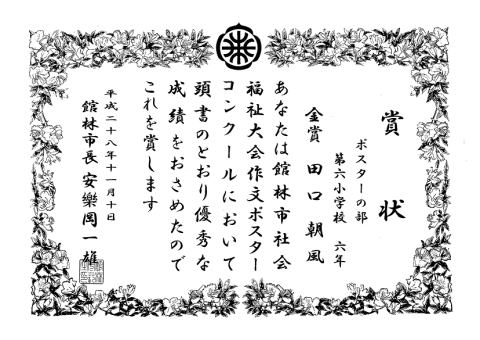 賞状
ポスターの部
第六小学校 六年
金賞 田口 朝風
あなたは館林市社会
福祉大会作文ポスター
コンクールにおいて
頭書のとおり優秀な
成績をおさめたので
これを賞します
平成二十八年十一月十日
館林市長 安樂岡一雄